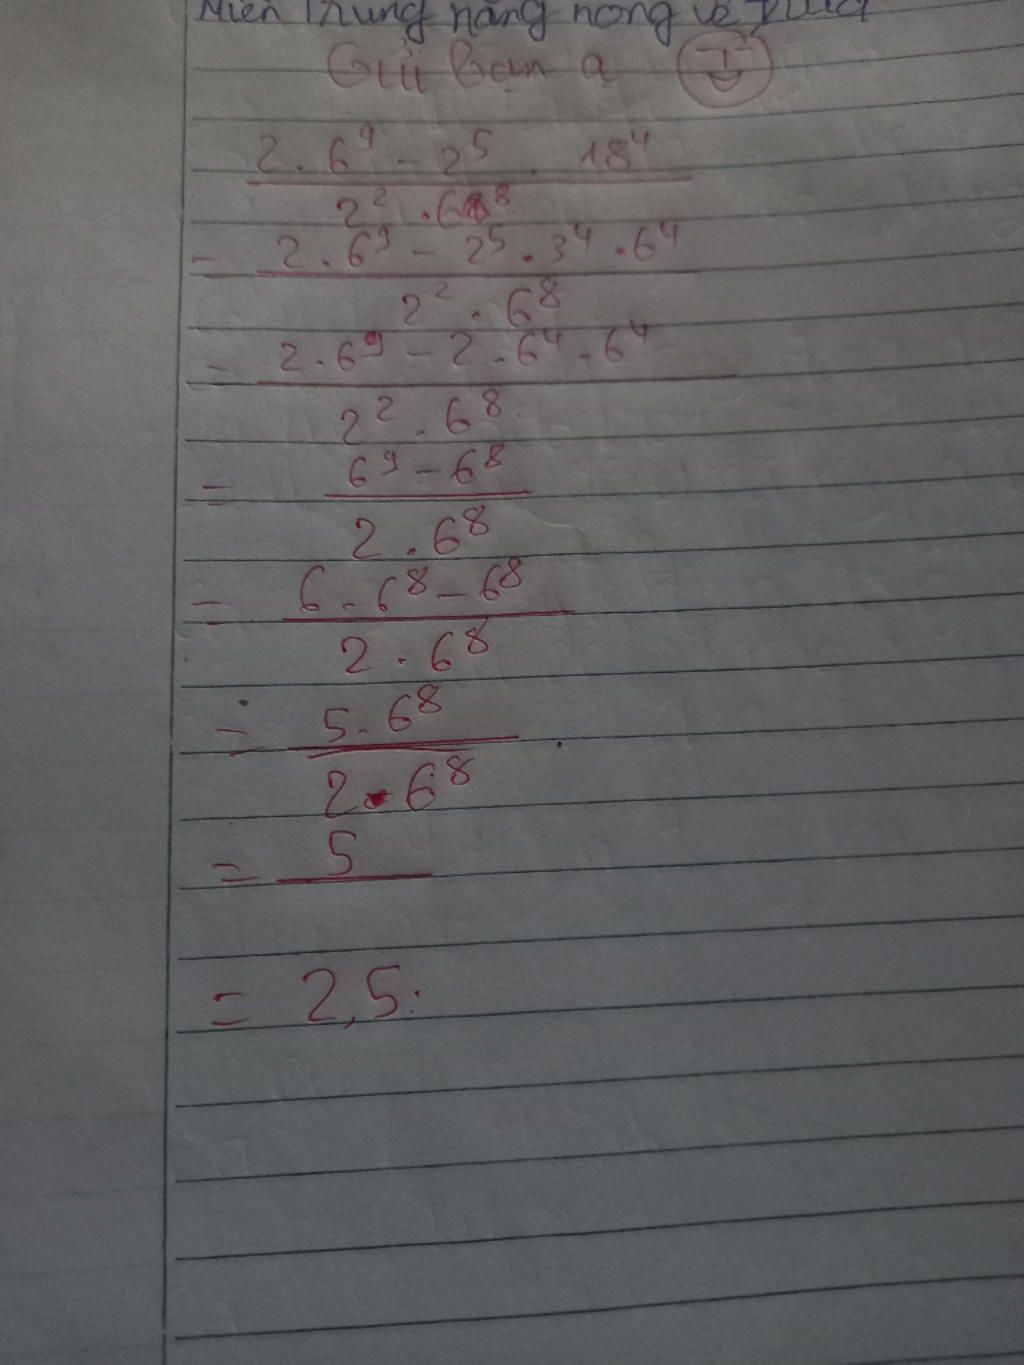 Miền Trung nắng nóng về
Gửi bạn ạ
2 . 6⁹ - 2⁵ . 18⁴
2² . 6⁸
= 2 . 6⁹ - 2⁵ . 3⁴ . 6⁴
2² . 6⁸
= 2 . 6⁹ - 2 . 6⁴ . 6⁴
2² . 6⁸
= 6⁹ - 6⁸
2 . 6⁸
= 6 . 6⁸ - 6⁸
2 . 6⁸
= 5 . 6⁸
2 . 6⁸
= 5
= 2,5.